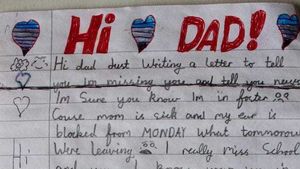 Hi DAD!
Hi dad Just Writing a letter to tell
you Im missing you and tell you news
Im Sure you know Im in foster
Couse mom is sick and my ear is
blocked from MONDAY What tommorow
Hi Were leaving I really miss School